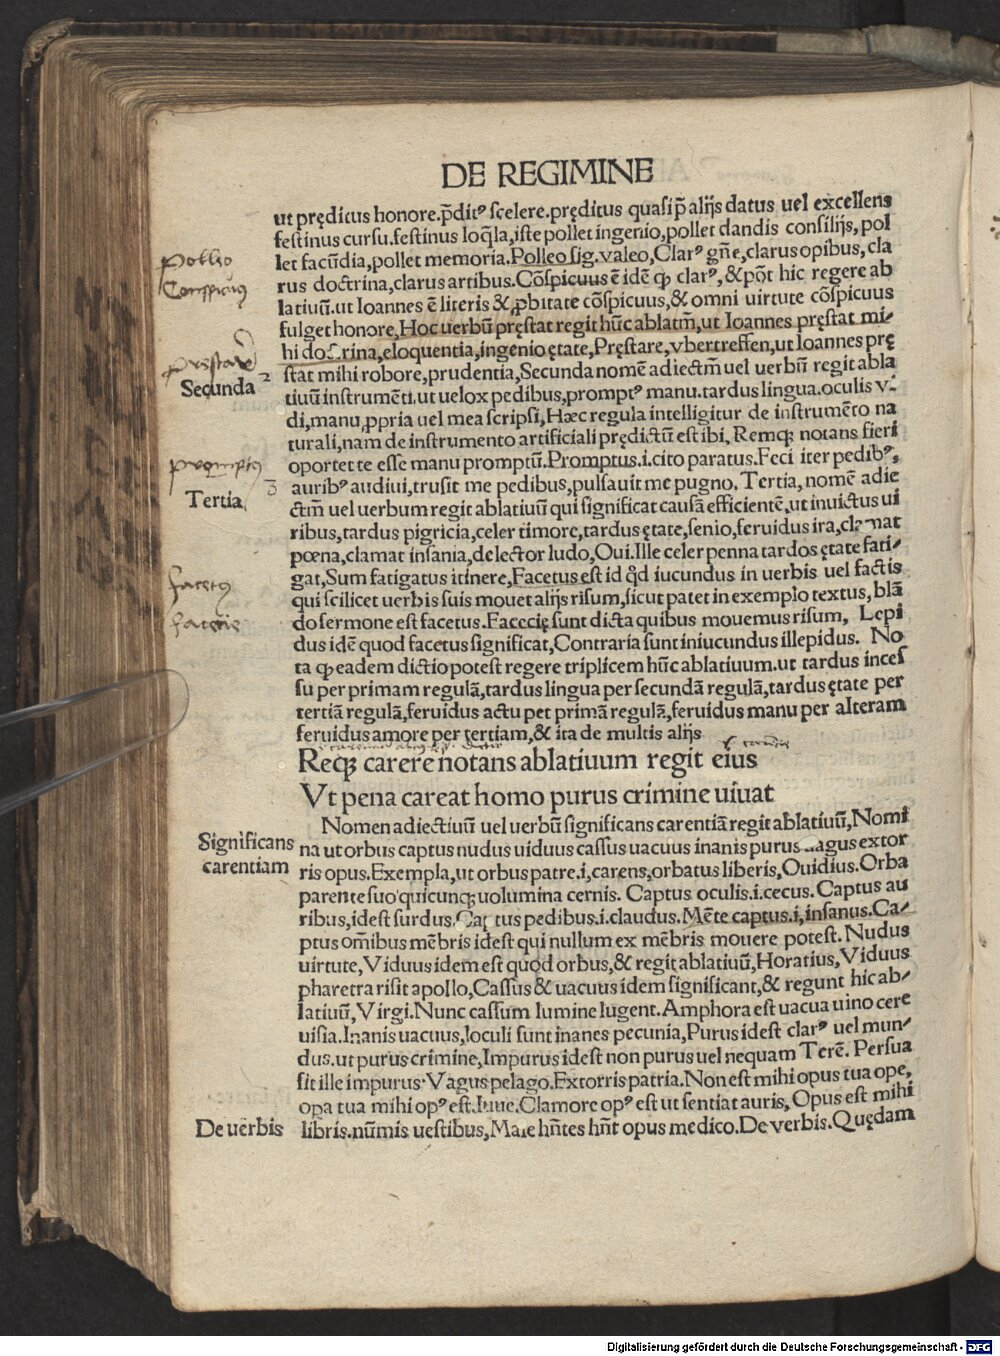 DE REGIMINE
ut pręditus honore.p̄dit⁹ scelere.pręditus quasi p̄ alijs datus uel excellens
festinus cursu.festinus loq̃la,iste pollet ingenio,pollet dandis consilijs, pol
Polleo
let facũdia,pollet memoria.Polleo sig.valeo,Clar⁹ gñe,clarus opibus, cla
Conspicuus
rus doctrina,clarus artibus.Cõspicuus ẽ idẽ ꝙ clar⁹, &põt hic regere ab
latiuũ.ut Ioannes ẽ literis &ꝓbitate cõspicuus,& omni uirtute cõspicuus
fulget honore,Hoc uerbũ pręstat regit hũc ablatm̃,ut Ioannes pręstat mi⸗
Prestare
hi doctrina,eloquentia,ingenio ętate,Pręstare,vbertreffen,ut Ioannes prę
Secunda 2
stat mihi robore,prudentia,Secunda nomẽ adiectm̃ uel uerbũ regit abla
tiuũ instrumẽti.ut uelox pedibus,prompt⁹ manu.tardus lingua.oculis vi
di,manu ꝓpria uel mea scripsi,Hæc regula intelligitur de instrumẽto na
turali,nam de instrumento artificiali prędictũ est ibi, Remqꝫ notans fieri
promptus
oportet te esse manu promptũ.Promptus.i.cito paratus.Feci iter pedib⁹,
3
aurib⁹ audiui,trusit me pedibus,pulsauit me pugno. Tertia, nomẽ adie
Tertia
ctm̃ uel uerbum regit ablatiuũ qui significat causã efficientẽ,ut inuictus ui
ribus,tardus pigricia,celer timore,tardus ętate,senio,feruidus ira,clamat
pœna,clamat insania,delector ludo,Oui.Ille celer penna tardos ętate fati⸗
facetus
gat,Sum fatigatus itinere,Facetus est id qd̃ iucundus in uerbis uel factis
qui scilicet uerbis suis mouet alijs risum,sicut patet in exemplo textus, blã
facecie
do sermone est facetus.Facecię sunt dicta quibus mouemus risum, Lepi
dus idẽ quod facetus significat,Contraria sunt iniucundus illepidus. No
ta ꝙ eadem dictio potest regere triplicem hũc ablatiuum.ut tardus inces
su per primam regulã,tardus lingua per secundã regulã,tardus ętate per
tertiã regulã,feruidus actu pet primã regulã,feruidus manu per alteram
feruidus amore per tertiam,& ita de multis alijs
Reqꝫ carere notans ablatiuum regit eius
Vt pena careat homo purus crimine uiuat
Nomen adiectiuũ uel uerbũ significans carentiã regit ablatiuũ,Nomi
Significans
na ut orbus captus nudus uiduus cassus uacuus inanis purus uagus extor
carentiam
ris opus.Exempla,ut orbus patre.i,carens,orbatus liberis,Ouidius.Orba
parente suo quicunqꝫ uolumina cernis. Captus oculis.i.cecus. Captus au
ribus,idest surdus.Captus pedibus.i.claudus.Mẽte captus.i,insanus.Ca⸗
ptus om̃ibus mẽbris idest qui nullum ex mẽbris mouere potest. Nudus
uirtute,Viduus idem est quod orbus,& regit ablatiuũ,Horatius,Viduus
pharetra risit apollo,Cassus & uacuus idem significant,& regunt hic ab⸗
latiuũ,Virgi.Nunc cassum lumine lugent.Amphora est uacua uino cere
uisia.Inanis uacuus,loculi sunt inanes pecunia,Purus idest clar⁹ uel mun⸗
dus.ut purus crimine,Impurus idest non purus uel nequam Terẽ. Persua
sit ille impurus.Vagus pelago.Extorris patria.Non est mihi opus tua ope,
opa tua mihi op⁹ est.Iuue.Clamore op⁹ est ut sentiat auris, Opus est mihi
De uerbis
libris.nũmis uestibus,Male hñtes hñt opus medico.De verbis.Quędam
Digitalisierung gefördert durch die Deutsche Forschungsgemeinschaft - DFG